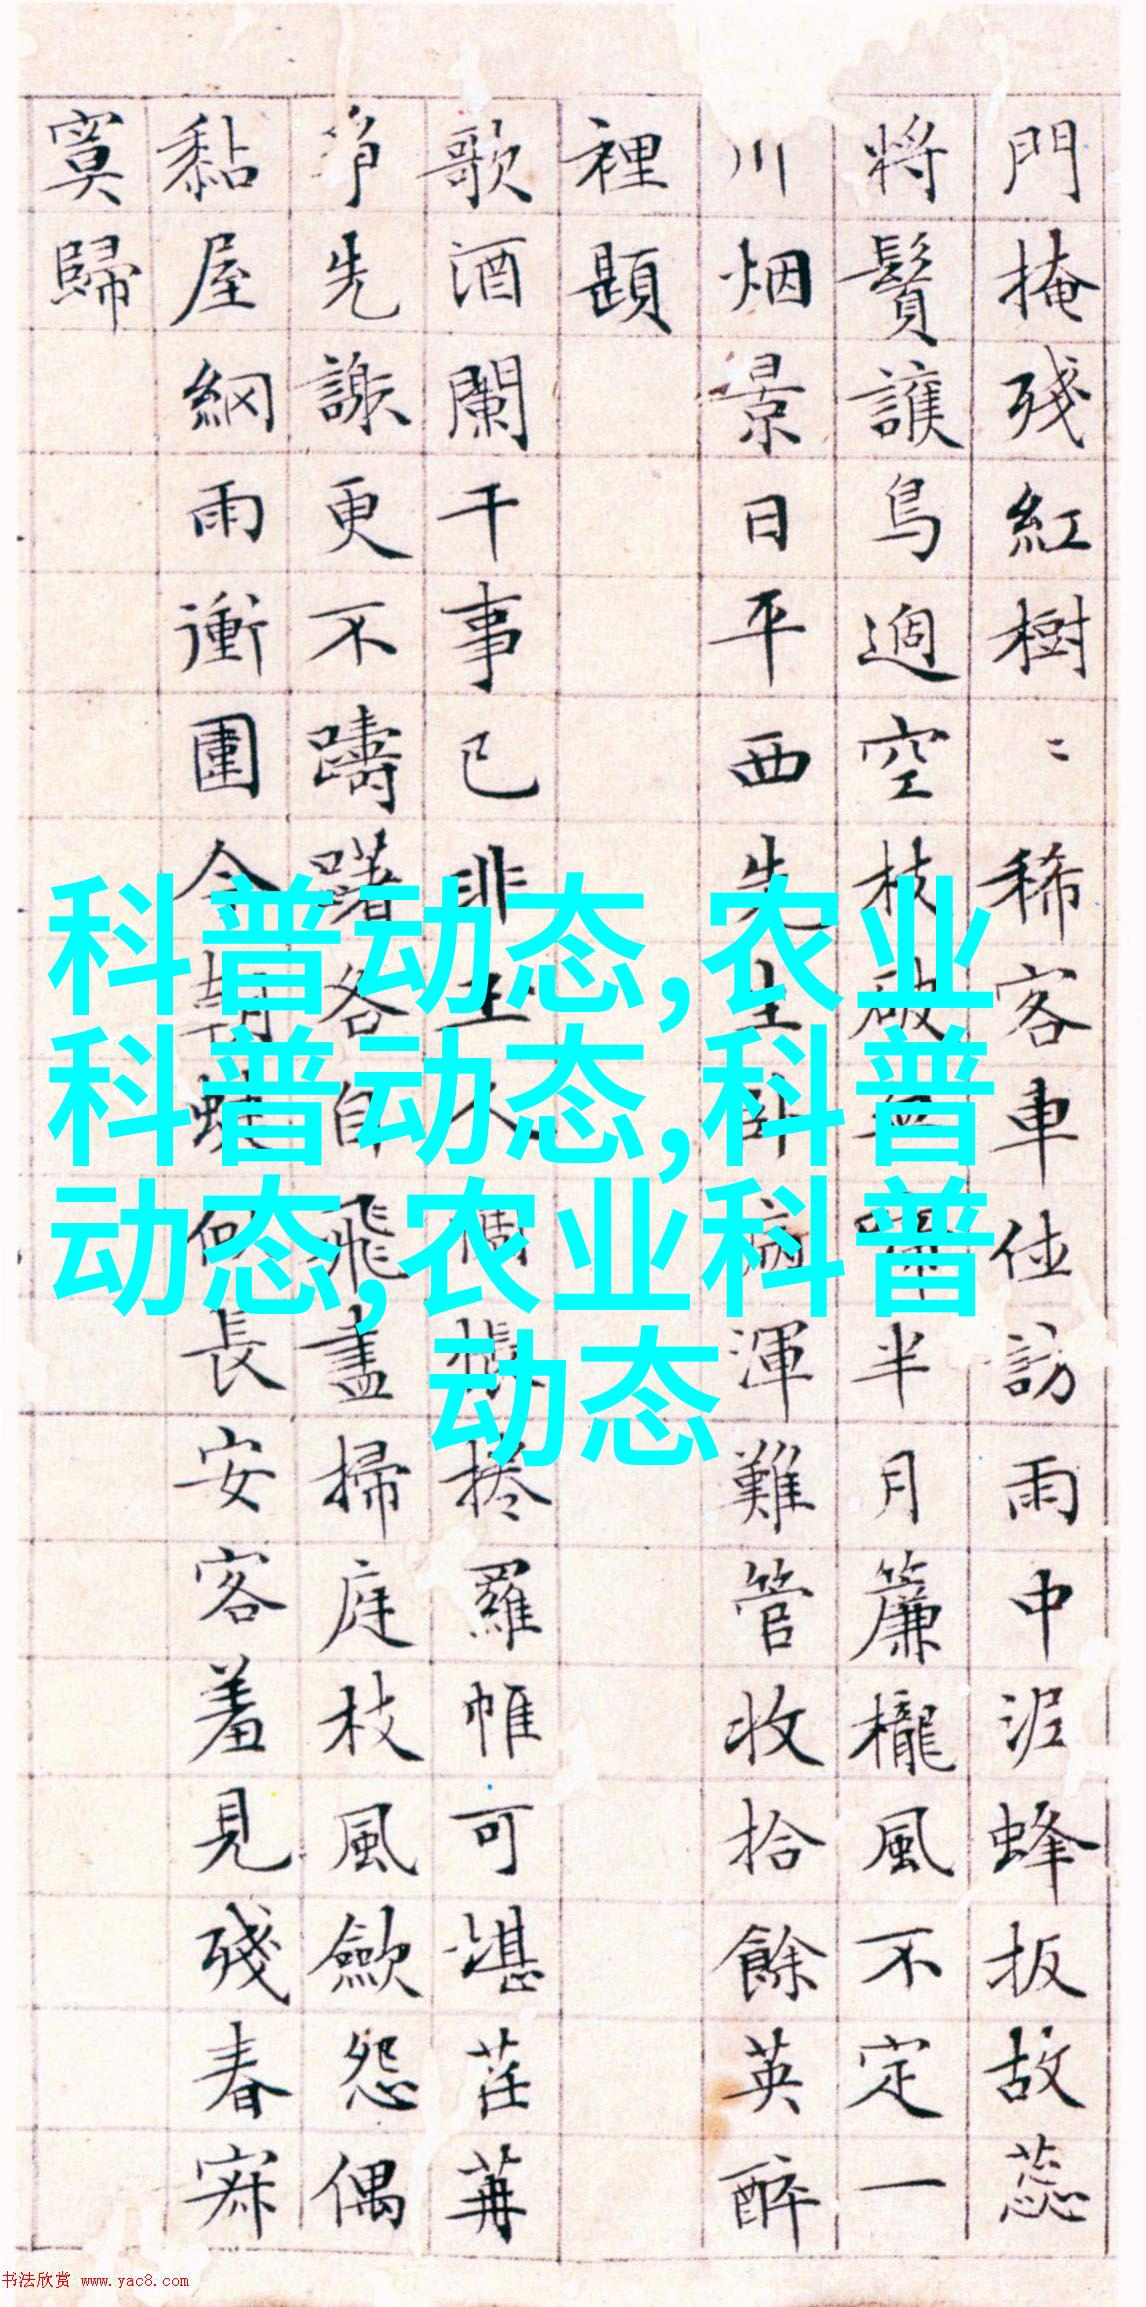 門掩殘紅樹〻稀客車住訪雨中泥蜂扳故蕊
將鬢護鳥過空枝破無半月簾櫳風不定一
川烟景日平西先生卧病渾難管收拾餘英醉
裡題
歌酒闌干事已非主人惆悵捲羅帷可堪荏苒
争先謝更不躊躇各自飛盡掃庭枝風歛怨偶
黏屋網雨衝圍今朝似長安客羞見殘春寂
寞歸
科普动态,农业
科普动态,科普
动态,农业科普
动态
书法欣赏 www.yac8.com